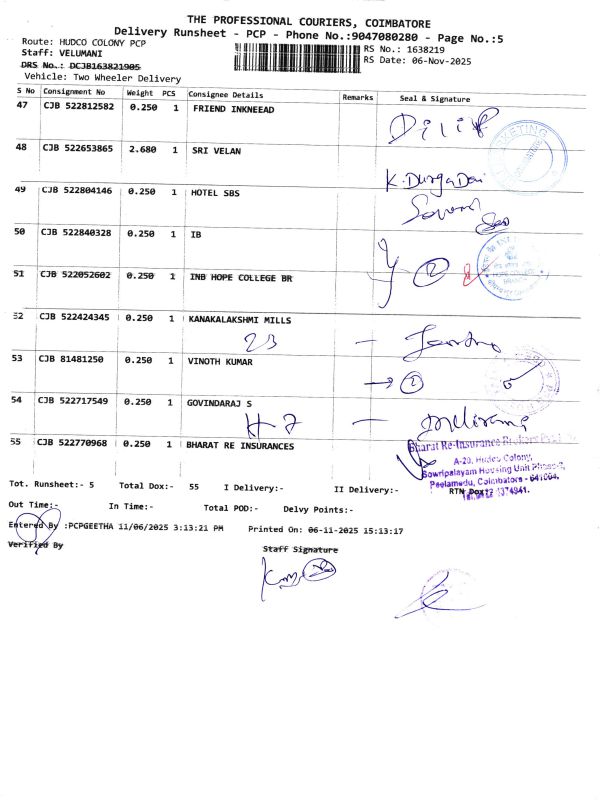 THE PROFESSIONAL COURIERS, COIMBATORE
Delivery Runsheet - PCP - Phone No.:9047080280 - Page No.:5
Route: HUDCO COLONY PCP
RS No.: 1638219
Staff: VELUMANI
RS Date: 06-Nov-2025
DRS No.: DCJB163821905
Vehicle: Two Wheeler Delivery
S No Consignment No Weight PCS Consignee Details Remarks Seal & Signature
47 CJB 522812582 0.250 1 FRIEND INKNEEAD
Dilip
48 CJB 522653865 2.680 1 SRI VELAN
K. Durga Devi
49 CJB 522804146 0.250 1 HOTEL SBS
50 CJB 522840328 0.250 1 IB
2
HOPE COLLEGE
BRANCH
51 CJB 522052602 0.250 1 INB HOPE COLLEGE BR
52 CJB 522424345 0.250 1 KANAKALAKSHMI MILLS
23 -
53 CJB 81481250 0.250 1 VINOTH KUMAR
→ 2
54 CJB 522717549 0.250 1 GOVINDARAJ S
H-7 -
55 CJB 522770968 0.250 1 BHARAT RE INSURANCES
Bharat Re-Insurance Brokers
A-20, Hudco Colony,
Sowripalayam Housing Unit Phase-2,
Peelamedu, Coimbatore - 641004.
Tot. Runsheet:- 5 Total Dox:- 55 I Delivery:- II Delivery:- RTN Dox:-
Out Time:- In Time:- Total POD:- Delvy Points:-
Entered By :PCPGEETHA 11/06/2025 3:13:21 PM Printed On: 06-11-2025 15:13:17
Verified By
Staff Signature